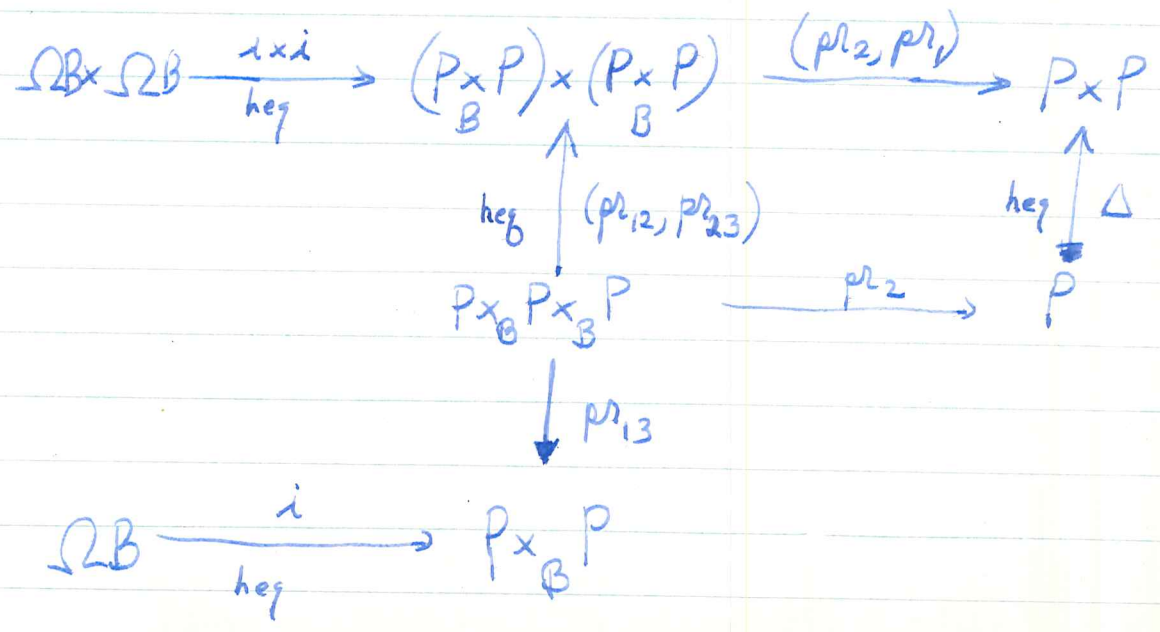 ΩB × ΩB i×i heq (P ×_B P) × (P ×_B P) (pr₂, pr₁) P × P
heq (pr₁₂, pr₂₃) heq Δ
P ×_B P ×_B P pr₂ P
pr₁₃
ΩB i heq P ×_B P